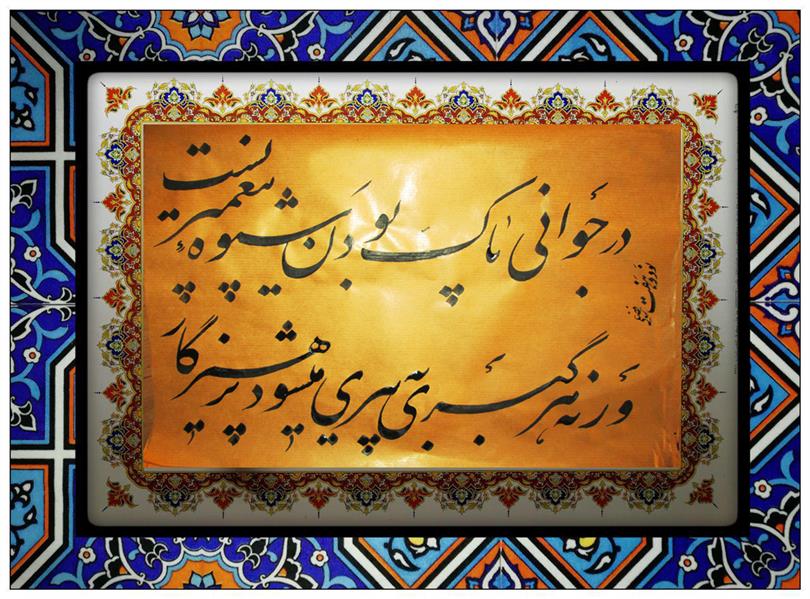 در جوانی پاک بودن شیوه پیغمبریست
ورنه هر گبری به پیری میشود پرهیزگار